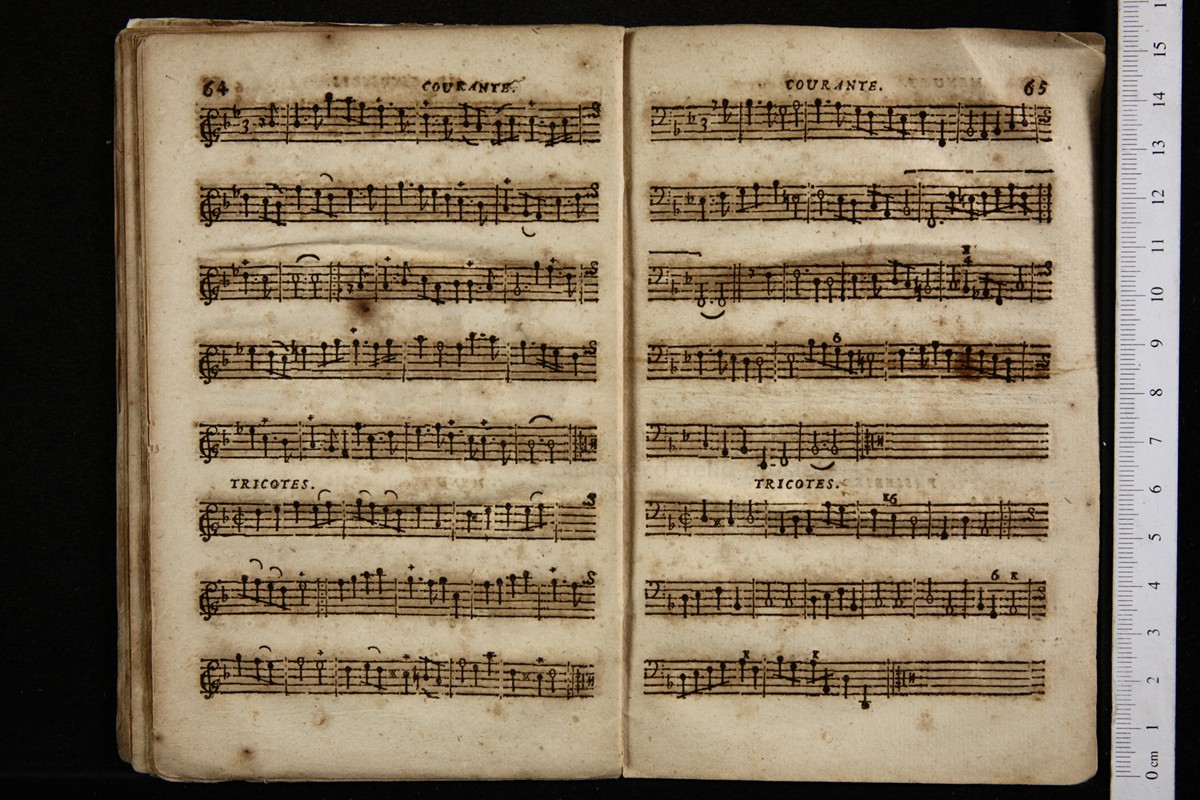 64
COURANTE.
TRICOTES.
COURANTE.
65
TRICOTES.
15
14
13
12
11
10
9
8
7
6
5
4
3
2
1
0 cm